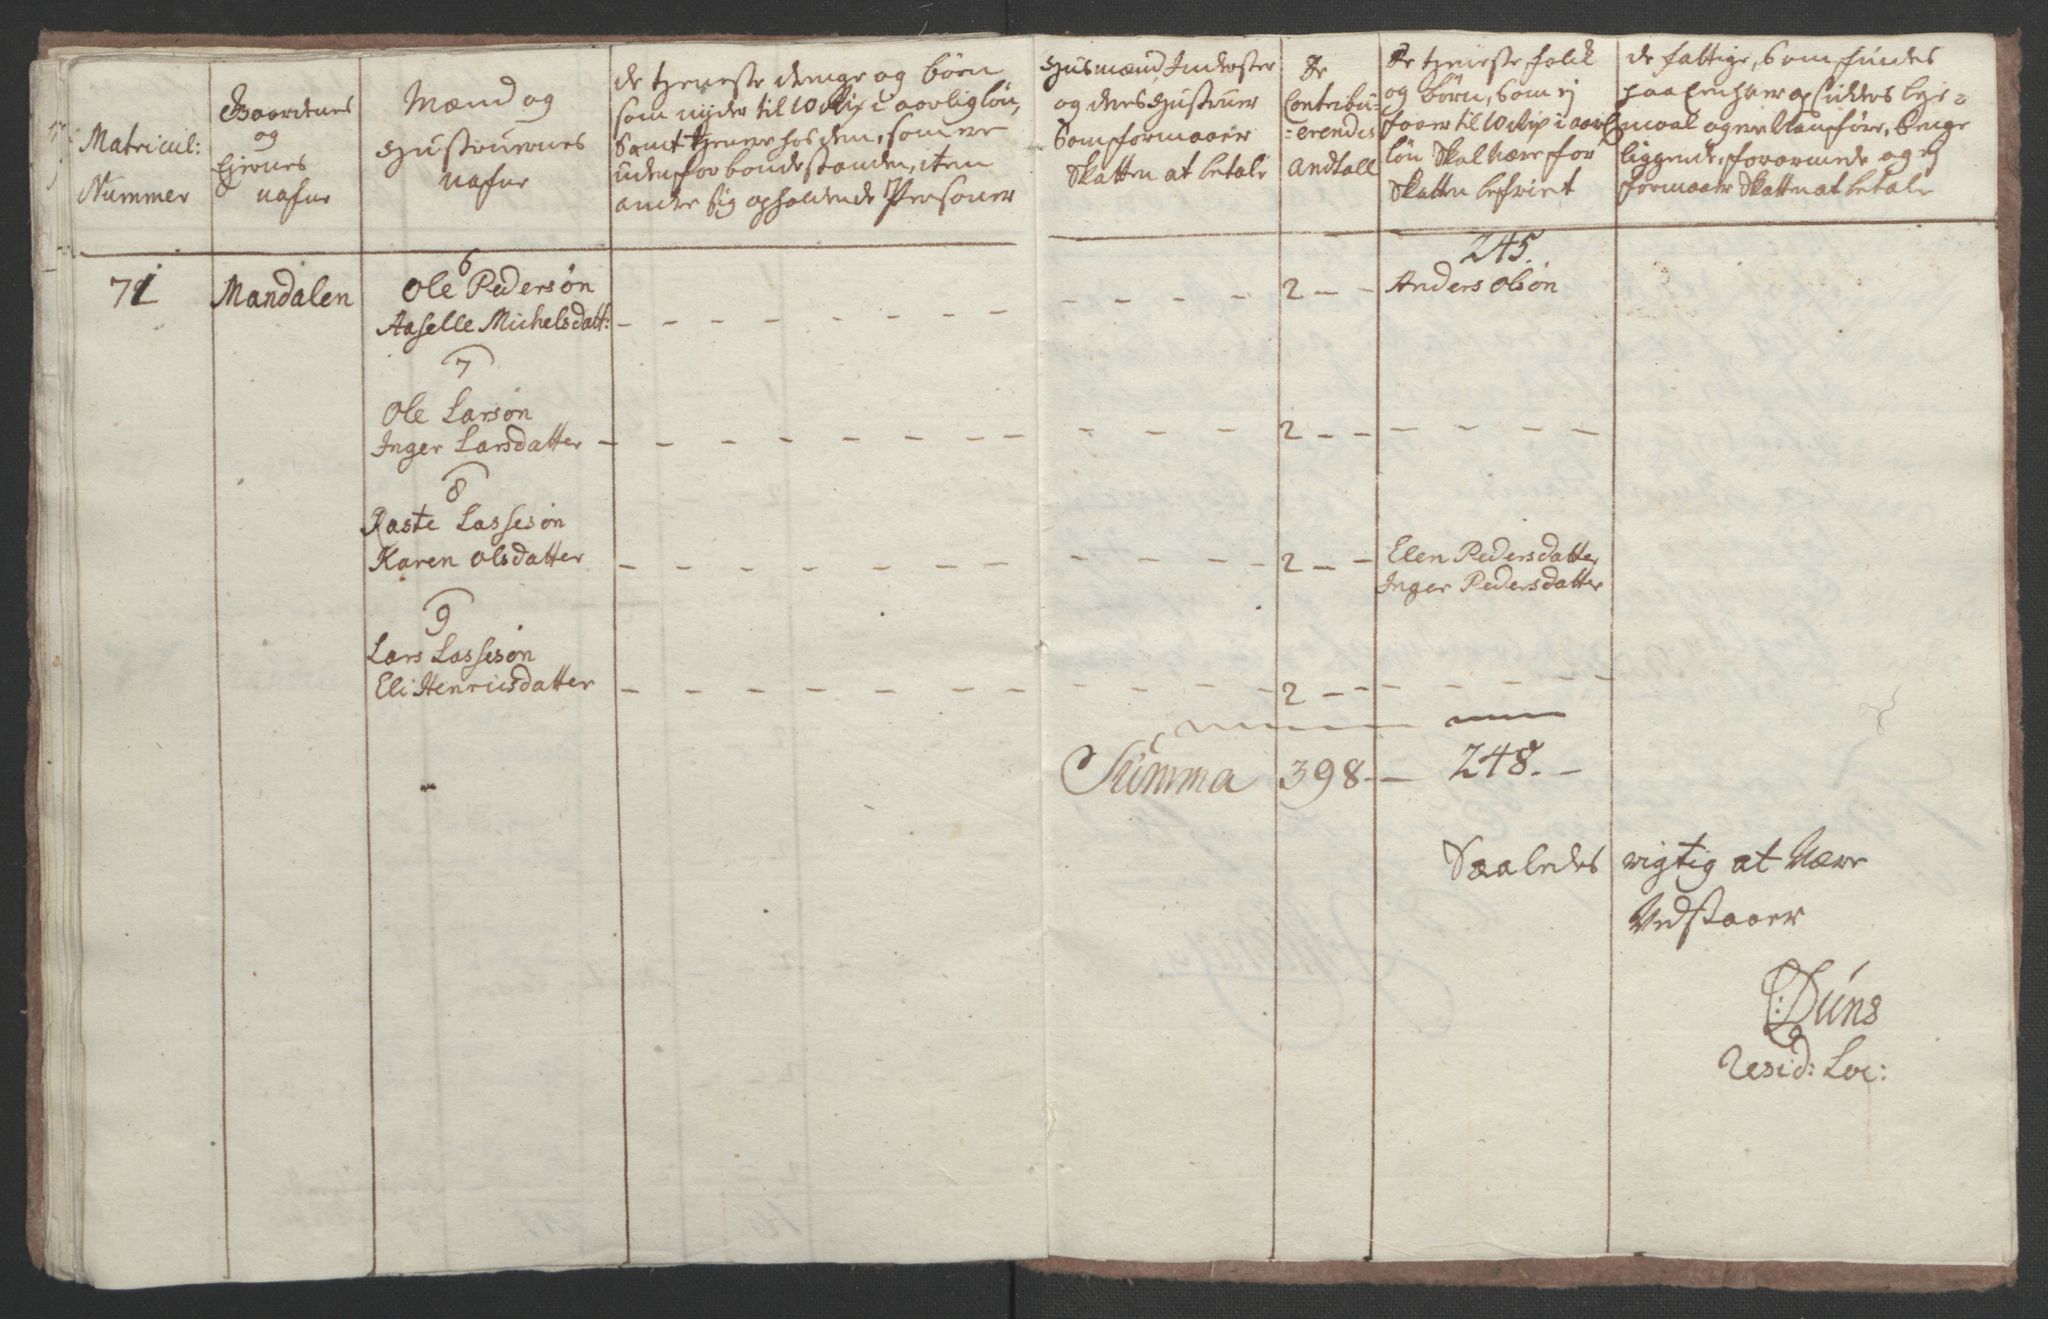 Matricul:
Nummer
Gaardenes
og
Ejernes
nafne
Mænd og
Hustruernes
nafne
de tieneste drenge og börn
som nyder til 10 Rix i aarlig lön,
samt tiener hos dem, som ere
uden for bondestanden, item
andre sig opholdende Personer
Husmænd Inderster
og deres Hustruer
som formaaer
Skatten at betale
De
Contribu-
=erendis
Andtall
De tieneste folk
og börn, som ej
faaer til 10 Rix i aarl
lön Skal være for
Skatten befriet
de fattige, som findes
paa Eenhver opsidders leje=
maal og ere Vanföre, Senge
liggende, forarmede og ej
formaaer Skatten at betale
6
245.
71 Mandalen Ole Pedersøn 2 Anders Olsøn
Aaselle Michelsdatt:
7
Ole Larsøn
Inger Larsdatter 2
8
Raste Lassesøn
Karen Olsdatter 2 Elen Pedersdatter
Inger Pedersdatter
9
Lars Lassesøn
Eli Henricsdatter 2
Summa 398 248.
Saaledes rigtig at være
Vedstaaer
C: Düns
resid: Loc: